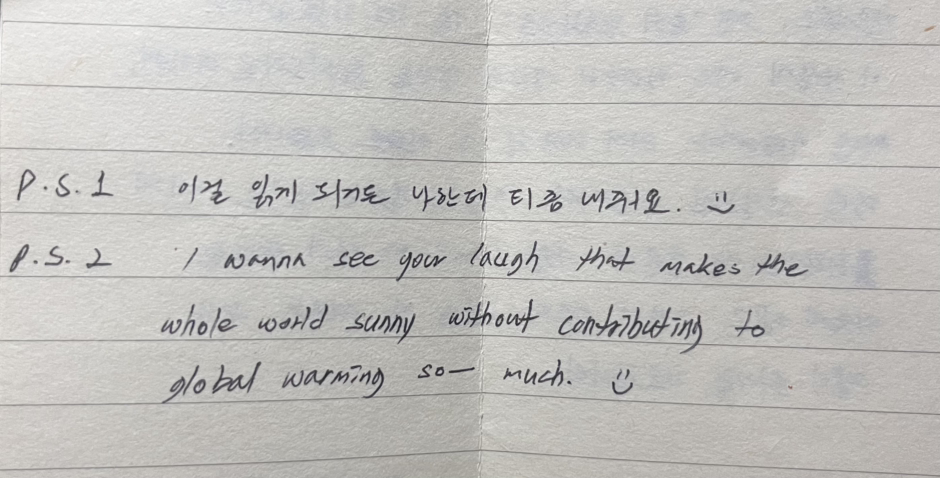 P.S.1 이걸 읽게 되거든 나한테 티좀 내줘요. :)
P.S.2 I wanna see your laugh that makes the
whole world sunny without contributing to
global warming so— much. :)